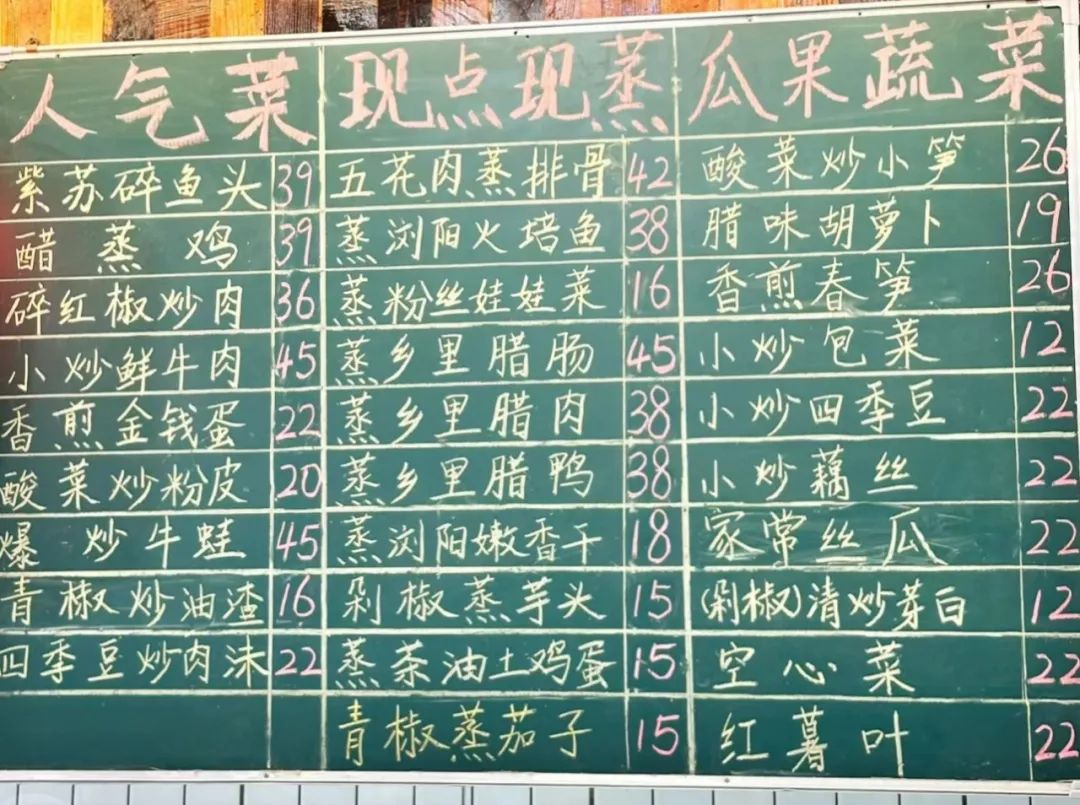 人气菜
紫苏碎鱼头 39
醋蒸鸡 39
碎红椒炒肉 36
小炒鲜牛肉 45
香煎金钱蛋 22
酸菜炒粉皮 20
爆炒牛蛙 45
青椒炒油渣 16
四季豆炒肉沫 22
现点现蒸
五花肉蒸排骨 42
蒸浏阳火培鱼 38
蒸粉丝娃娃菜 16
蒸乡里腊肠 45
蒸乡里腊肉 38
蒸乡里腊鸭 38
蒸浏阳嫩香干 18
剁椒蒸芋头 15
蒸茶油土鸡蛋 15
青椒蒸茄子 15
瓜果蔬菜
酸菜炒小笋 26
腊味胡萝卜 19
香煎春笋 26
小炒包菜 12
小炒四季豆 22
小炒藕丝 22
家常丝瓜 22
(剁椒)清炒芽白 12
空心菜 22
红暮叶 22